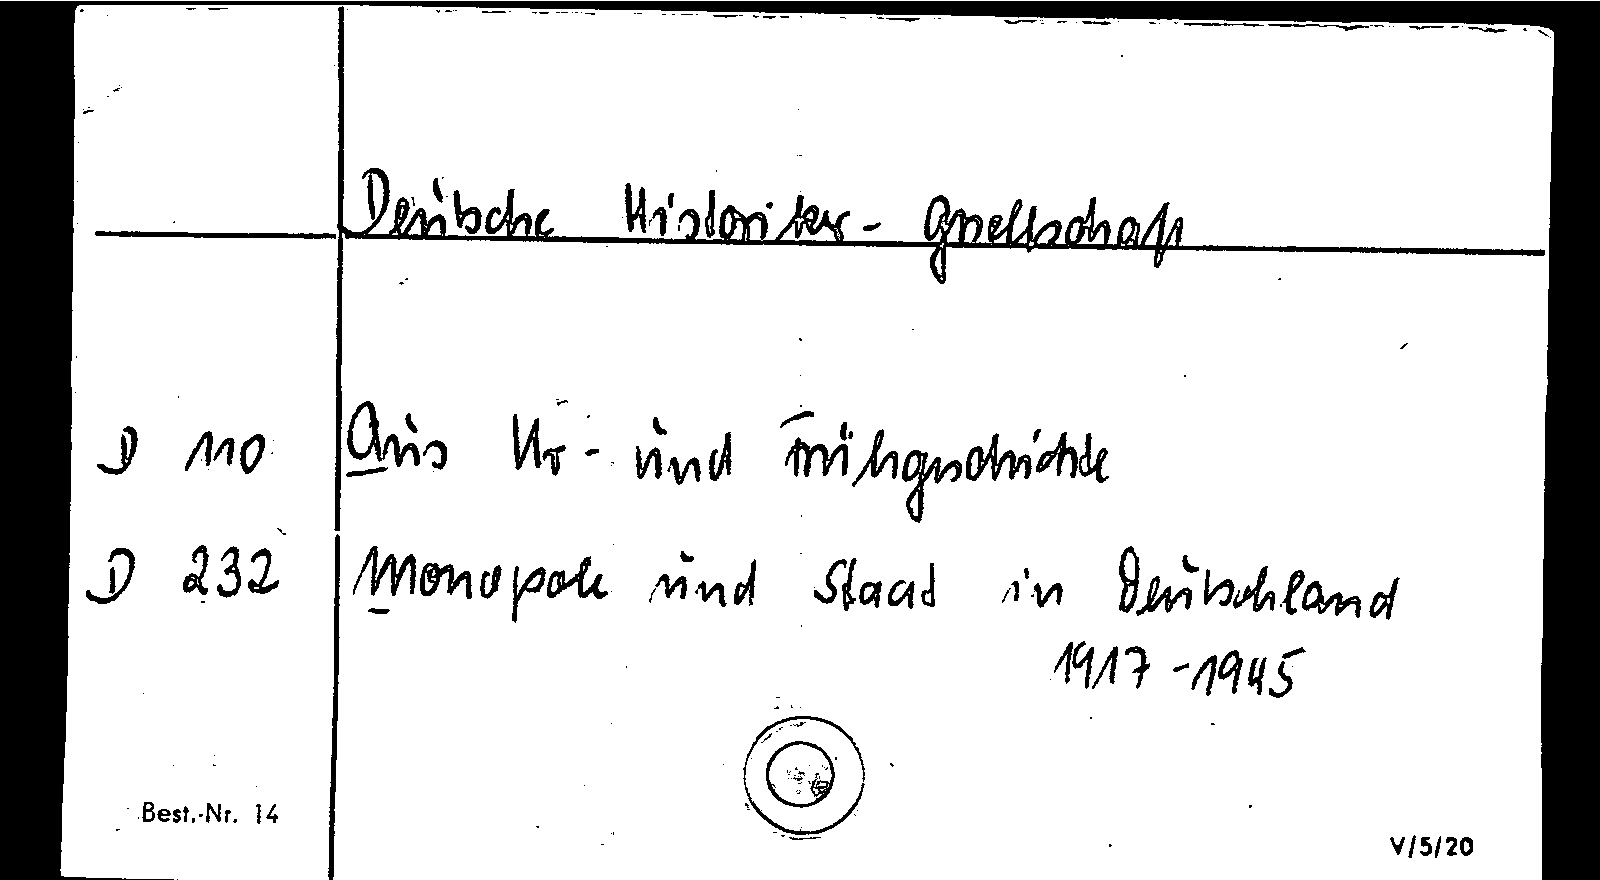 Deutsche Historiker-Gesellschaft
D 110 Aus Ur- und Frühgeschichte
D 232 Monopole und Staat in Deutschland
1917-1945
Best.-Nr. 14
V/5/20